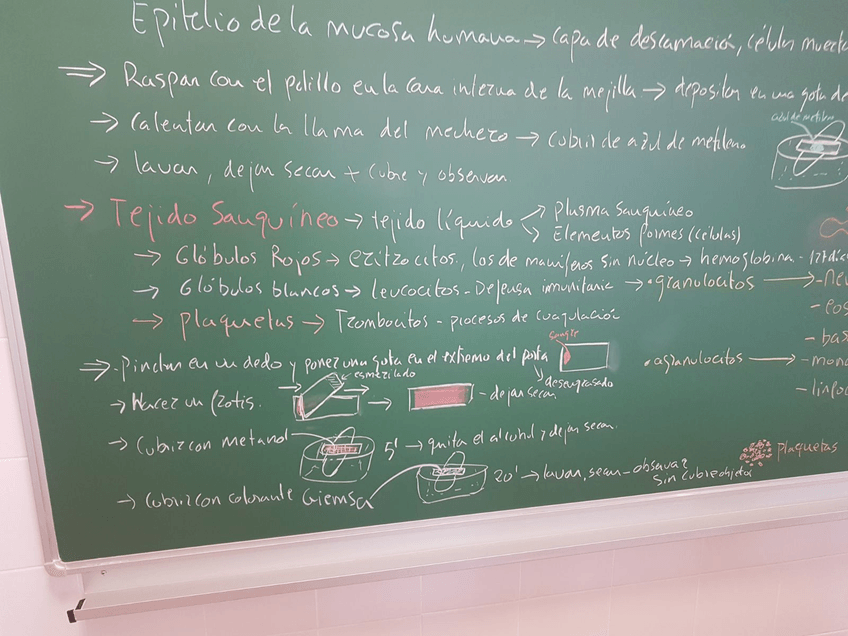 Epitelio de la mucosa humana → capa de descamación, células muerta
⇒ Raspar con el palillo en la cara interna de la mejilla → depositar en una gota de
→ Calentar con la llama del mechero → cubrir de azul de metileno
azul de metileno
→ lavar, dejar secar + cubre y observar
→ Tejido Sanguíneo → tejido líquido → Plasma sanguíneo
→ Elementos formes (células)
→ Glóbulos Rojos → eritrocitos, los de mamíferos sin núcleo → hemoglobina -
→ Glóbulos blancos → leucocitos - Defensa inmunitaria → · granulocitos → - neu
- eos
- bas
→ plaquetas → Trombocitos - procesos de coagulación
· agranulocitos → - mono
- linfoc
⇒ · Pinchar en un dedo y poner una gota en el extremo del porta
sangre
desengrasado
esmerilado
→ Hacer un frotis. → - dejar secar
→ Cubrir con metanol 5' → quita el alcohol y dejar secar.
plaquetas
→ Cubrir con colorante Giemsa 20' → lavar, secar - observar
sin cubreobjetos